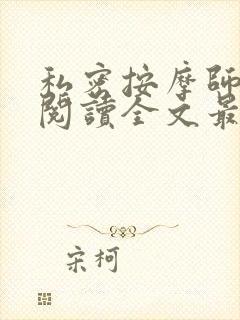 私密按摩師
閱讀全文最
宋柯